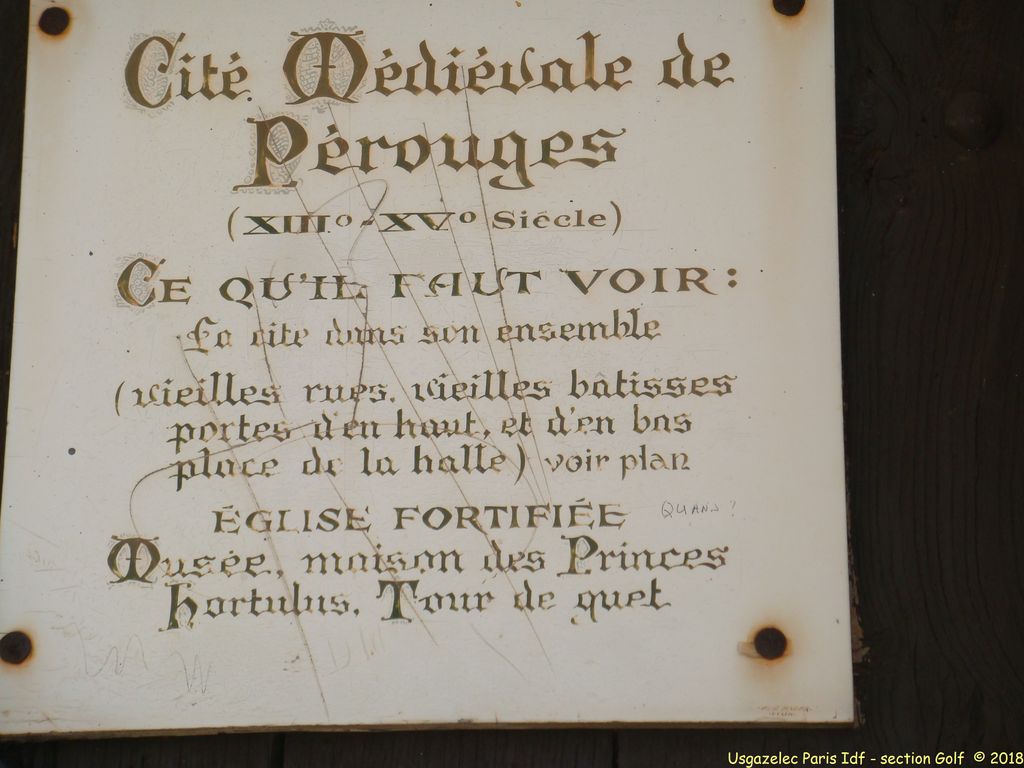 Cité Médiévale de
Pérouges
(XIIIº-XVº Siécle)
CE QU'IL FAUT VOIR:
La cite dans son ensemble
(vieilles rues, vieilles bâtisses
portes d'en haut, et d'en bas
place de la halle) voir plan
ÉGLISE FORTIFIÉE QUAND ?
Musée, maison des Princes
hortulus, Tour de guet
Usgazelec Paris Idf - section Golf © 2018